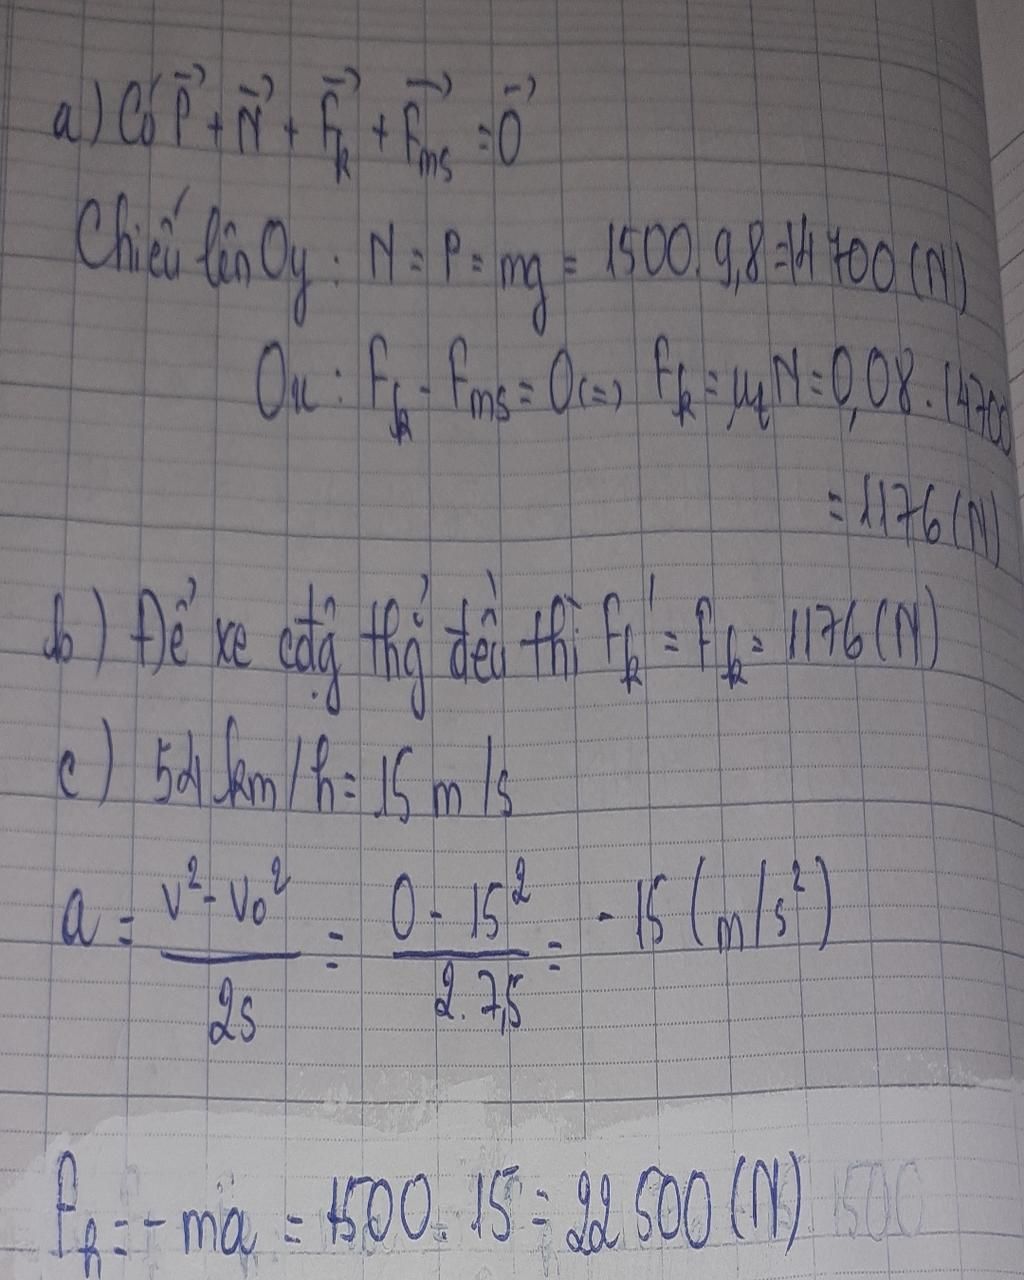 a) Có P⃗ + N⃗ + F⃗k + F⃗ms = 0⃗
Chiếu lên Oy: N = P = mg = 1500.9,8 = 14700 (N)
Ox: Fk - Fms = 0 <=> Fk = μt N = 0,08.14700
= 1176 (N)
b) Để xe cđg thg̉ đều thì Fk' = Fk = 1176 (N)
c) 54 km/h = 15 m/s
a = (v² - v₀²)/2s = (0 - 15²)/2.7,5 = -15 (m/s²)
Fh = -ma = 1500.15 = 22500 (N) 1500